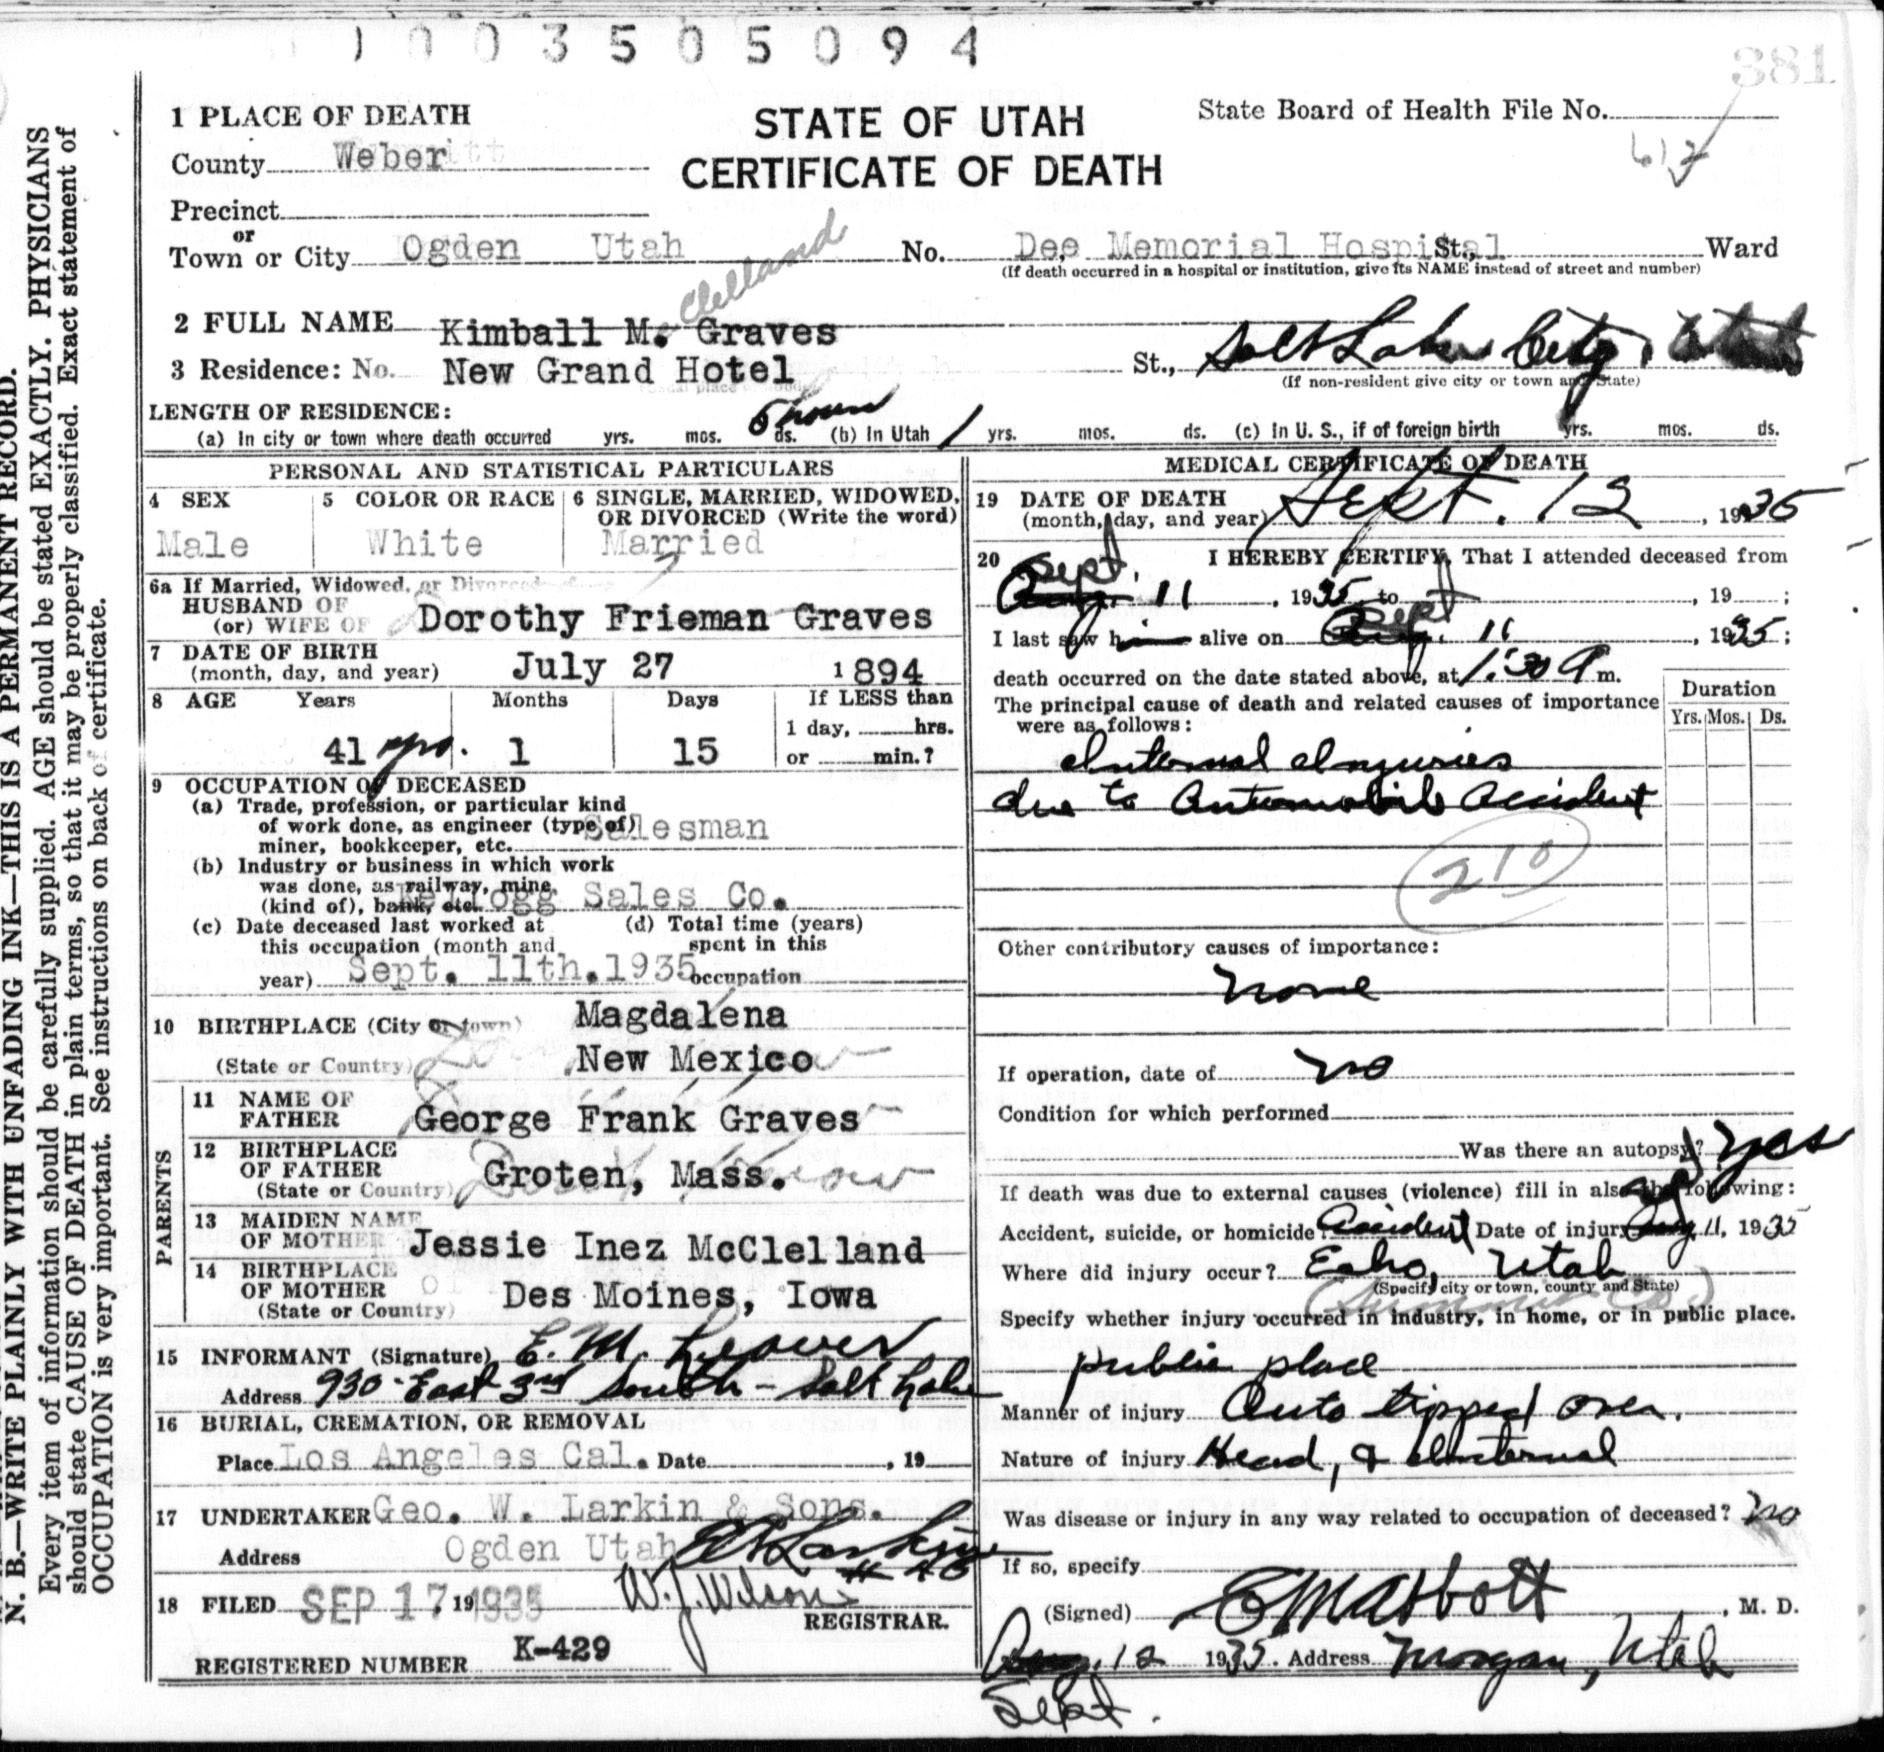 0 0 3 5 0 5 0 9 4
381
1 PLACE OF DEATH
STATE OF UTAH
CERTIFICATE OF DEATH
State Board of Health File No.
County Weber
Precinct
or
Town or City Ogden Utah No. Dee Memorial Hospital St., Ward
(If death occurred in a hospital or institution, give its NAME instead of street and number)
Clelland
2 FULL NAME Kimball M. Graves
3 Residence: No. New Grand Hotel St., Salt Lake City, Utah
(If non-resident give city or town and State)
LENGTH OF RESIDENCE:
(a) In city or town where death occurred yrs. mos. 5 hours ds. (b) In Utah 1 yrs. mos. ds. (c) In U. S., if of foreign birth yrs. mos. ds.
PERSONAL AND STATISTICAL PARTICULARS
4 SEX
Male
5 COLOR OR RACE
White
6 SINGLE, MARRIED, WIDOWED,
OR DIVORCED (Write the word)
Married
6a If Married, Widowed, or Divorced
HUSBAND OF
(or) WIFE OF Dorothy Frieman Graves
7 DATE OF BIRTH
(month, day, and year) July 27 1894
8 AGE Years Months Days If LESS than
1 day, hrs.
41 yrs. 1 15 or min.?
9 OCCUPATION OF DECEASED
(a) Trade, profession, or particular kind
of work done, as engineer (type of) Salesman
miner, bookkeeper, etc.
(b) Industry or business in which work
was done, as railway, mine,
(kind of), bank, etc. Kellogg Sales Co.
(c) Date deceased last worked at (d) Total time (years)
this occupation (month and spent in this
year) Sept. 11th.1935 occupation
10 BIRTHPLACE (City or town) Magdalena
(State or Country) New Mexico
PARENTS
11 NAME OF
FATHER George Frank Graves
12 BIRTHPLACE
OF FATHER Groten, Mass.
(State or Country) Don't Know
13 MAIDEN NAME
OF MOTHER Jessie Inez McClelland
14 BIRTHPLACE
OF MOTHER Des Moines, Iowa
(State or Country)
15 INFORMANT (Signature) E. M. Leaver
Address 930 East 3rd South - Salt Lake
16 BURIAL, CREMATION, OR REMOVAL
Place Los Angeles Cal. Date , 19
17 UNDERTAKER Geo. W. Larkin & Sons.
Address Ogden Utah
18 FILED SEP 17 1935 W. J. Wilson
REGISTRAR.
REGISTERED NUMBER K-429
MEDICAL CERTIFICATE OF DEATH
19 DATE OF DEATH
(month, day, and year) Sept. 12, 1935
20 I HEREBY CERTIFY, That I attended deceased from
Sept. Aug. 11, 1935 to , 19 ;
I last saw him alive on Sept Aug. 11, 1935;
death occurred on the date stated above, at 1:30 A m.
The principal cause of death and related causes of importance
were as follows:
Duration
Yrs. Mos. Ds.
Internal Injuries
due to Automobile Accident
210
Other contributory causes of importance:
None
If operation, date of no
Condition for which performed
Was there an autopsy? Yes
If death was due to external causes (violence) fill in also the following:
Accident, suicide, or homicide? Accident Date of injury Sept Aug 11, 1935
Where did injury occur? Echo, Utah
(Specify city or town, county and State)
(Summit Co.)
Specify whether injury occurred in industry, in home, or in public place.
public place
Manner of injury Auto tipped over.
Nature of injury Head, & Internal
Was disease or injury in any way related to occupation of deceased? No
If so, specify
(Signed) E M Abbott, M. D.
Aug. 12 1935. Address Morgan, Utah
Sept.
N. B.—WRITE PLAINLY WITH UNFADING INK—THIS IS A PERMANENT RECORD.
Every item of information should be carefully supplied. AGE should be stated EXACTLY. PHYSICIANS
should state CAUSE OF DEATH in plain terms, so that it may be properly classified. Exact statement of
OCCUPATION is very important. See instructions on back of certificate.